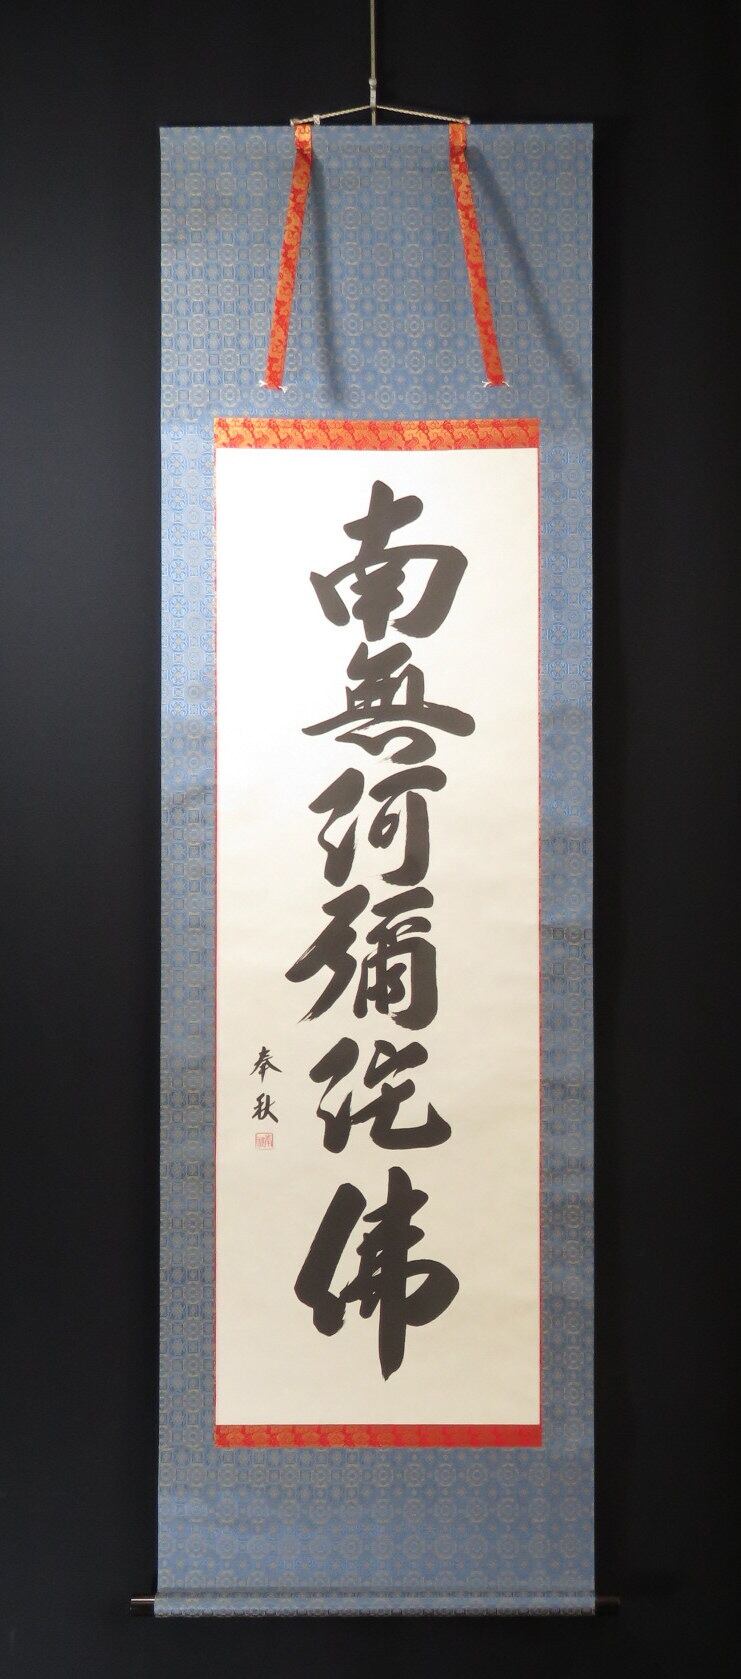 南無阿彌陀佛
奉秋